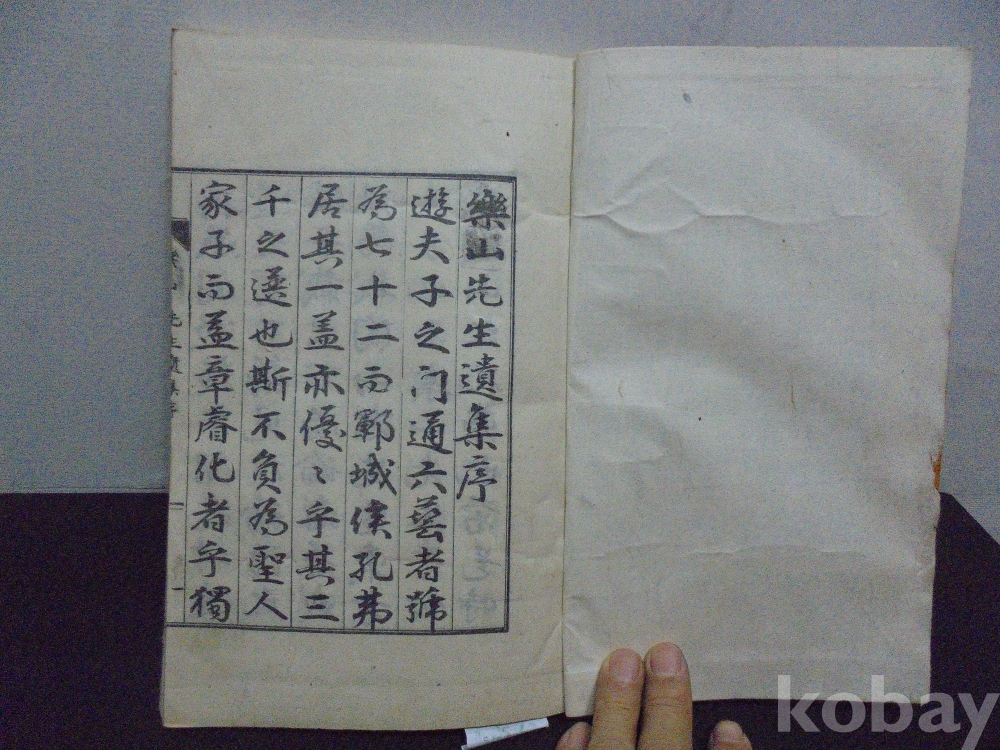 樂山先生遺集序
遊夫子之门通六藝者號
為七十二而鄆城侯孔弗
居其一盖亦優〻乎其三
千之選也斯不負為聖人
家子而益章睿化者乎獨
先生遺集序
kobay